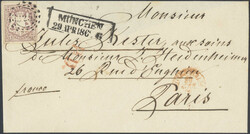 MÜNCHEN
29 APR 186 6
Monsieur
Jules Kester, aux soins
de Monsieur Heidenheim
26 Rue d'Enghien
Paris
franco